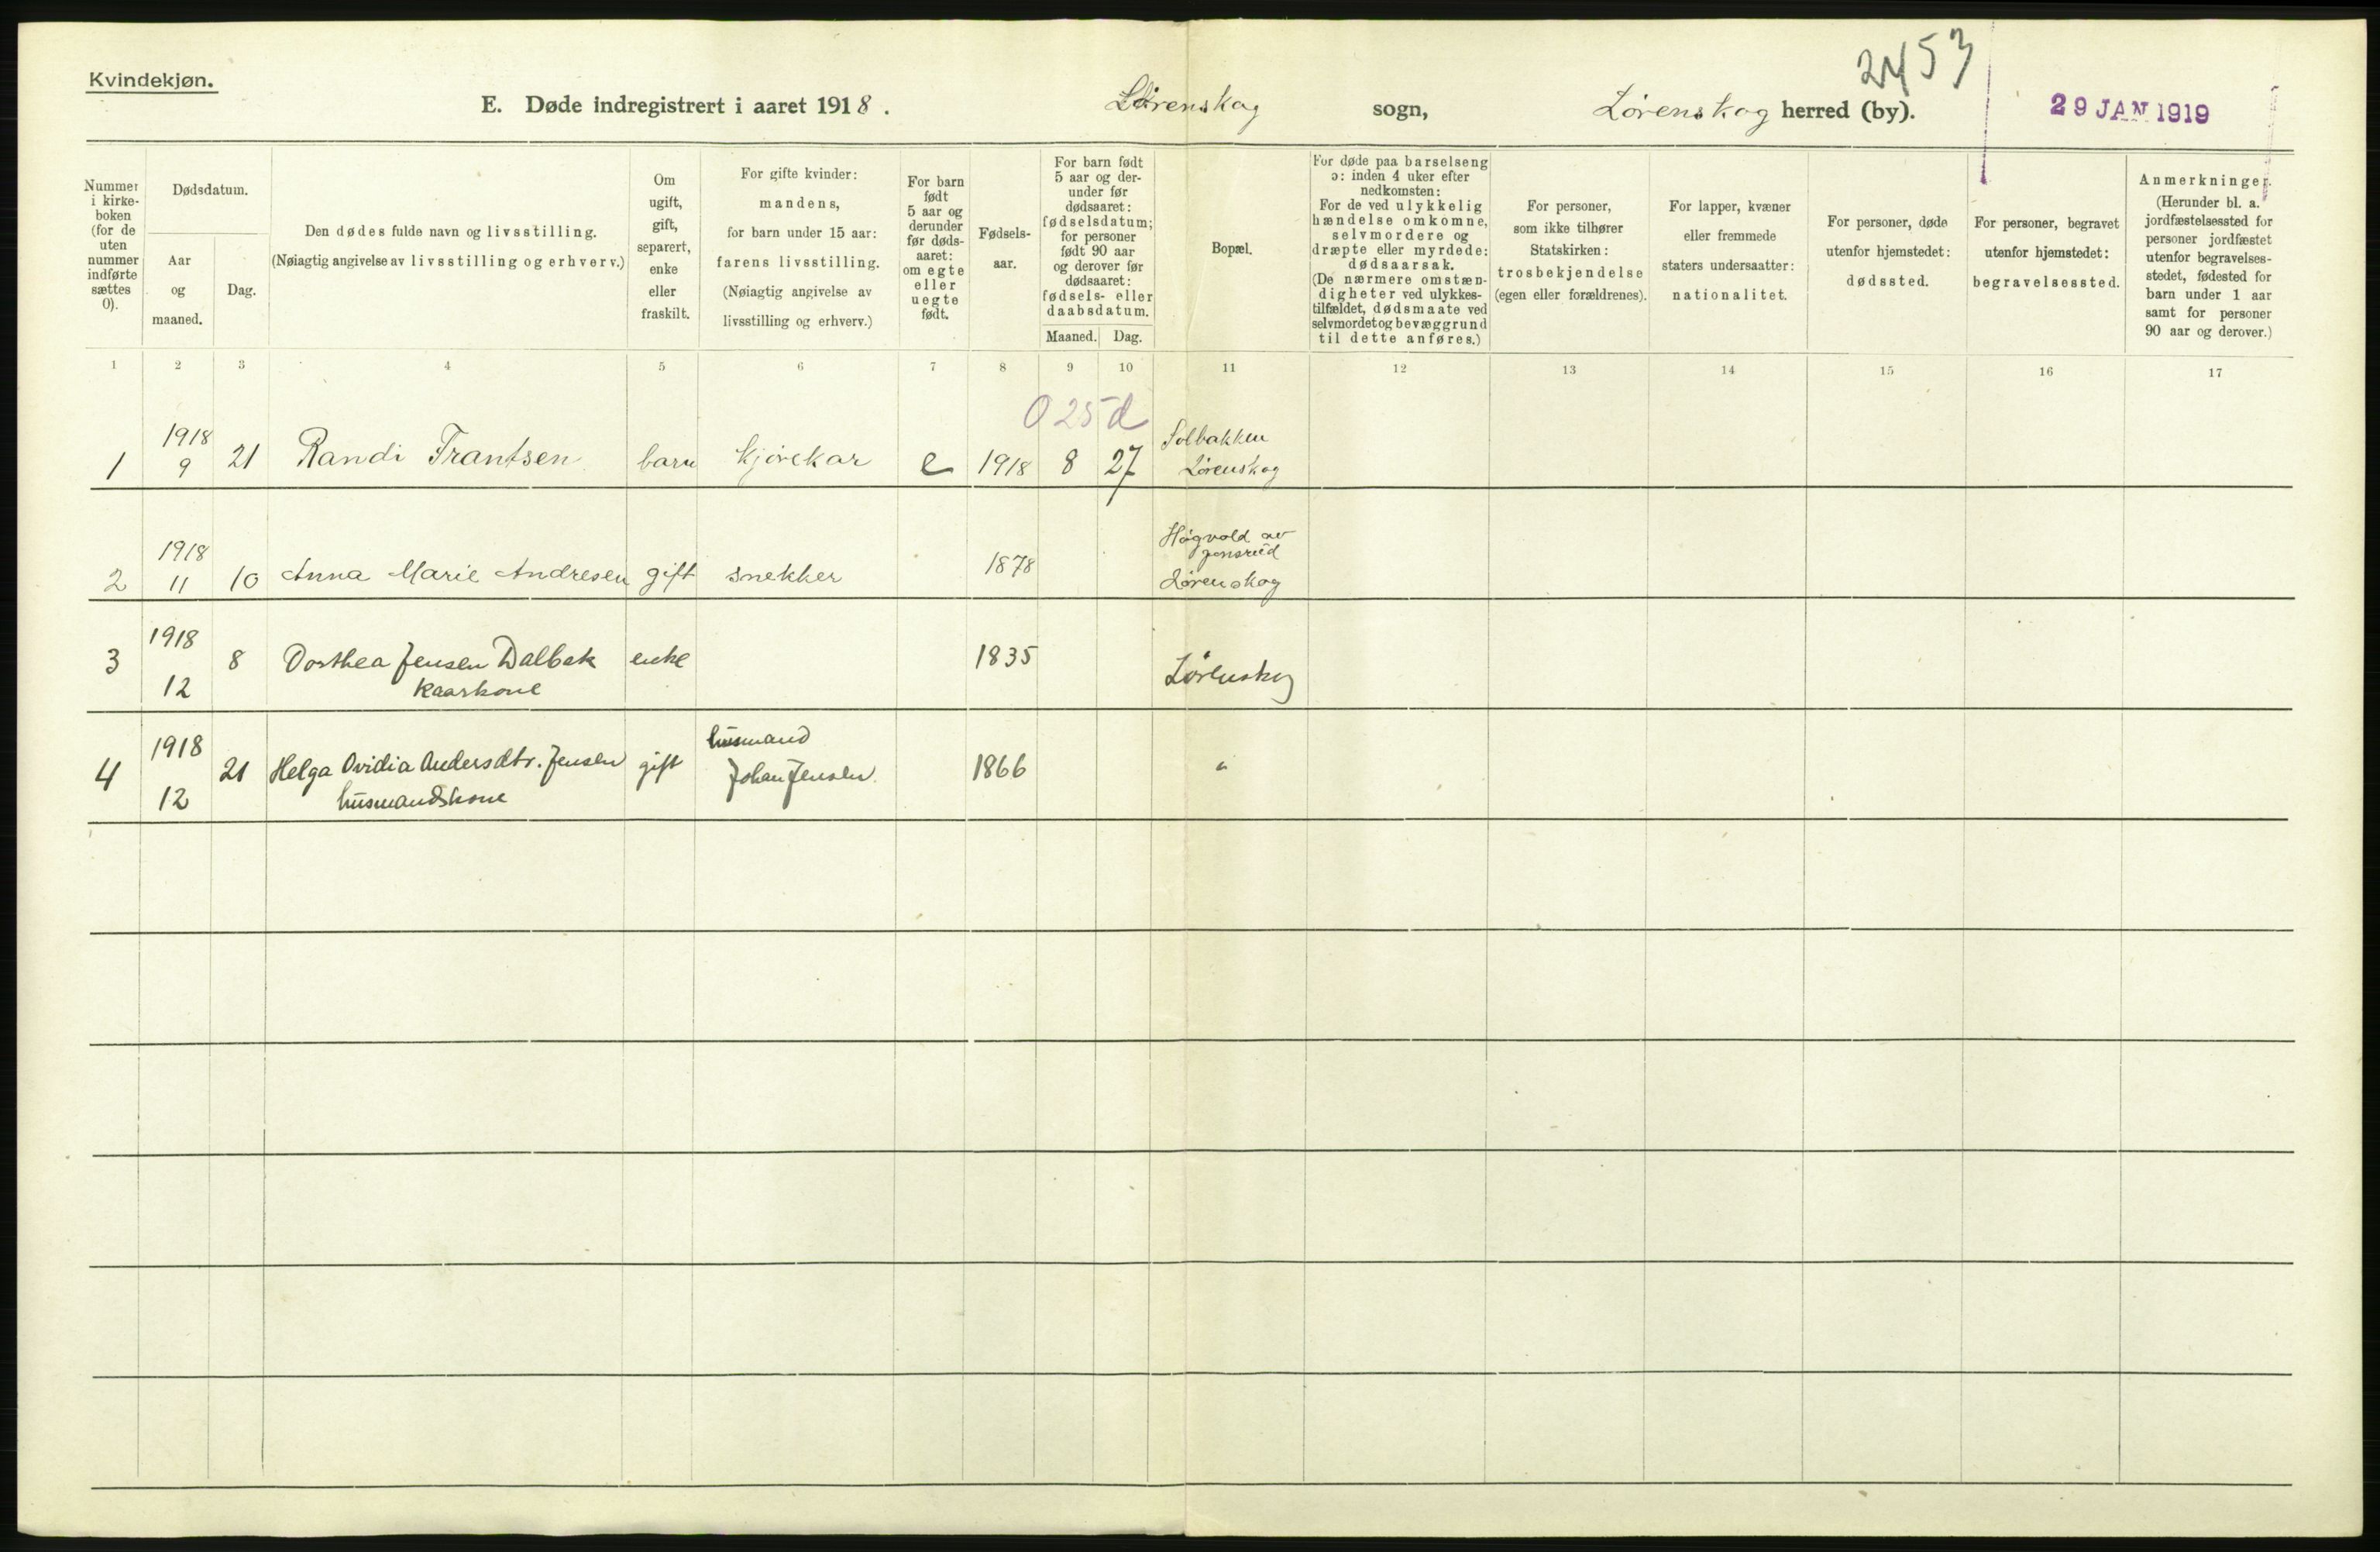 2453
Kvindekjøn.
E. Døde indregistrert i aaret 1918. Lørenskog sogn, Lørenskog herred (by).
29 JAN 1919
Nummer
i kirke-
boken
(for de
uten
nummer
indførte
sættes
0).
Dødsdatum.
Aar
og
maaned.
Dag.
Den dødes fulde navn og livsstilling.
(Nøiagtig angivelse av livsstilling og erhverv.)
Om
ugift,
gift,
separert,
enke
eller
fraskilt.
For gifte kvinder:
mandens,
for barn under 15 aar:
farens livsstilling.
(Nøiagtig angivelse av
livsstilling og erhverv.)
For barn
født
5 aar og
derunder
før døds-
aaret:
om egte
eller
uegte
født.
Fødsels-
aar.
For barn født
5 aar og der-
under før
dødsaaret:
fødselsdatum;
for personer
født 90 aar
og derover før
dødsaaret:
fødsels- eller
daabsdatum.
Maaned. Dag.
Bopæl.
For døde paa barselseng
ɔ: inden 4 uker efter
nedkomsten:
For de ved ulykkelig
hændelse omkomne,
selvmordere og
dræpte eller myrdede:
dødsaarsak.
(De nærmere omstæn-
digheter ved ulykkes-
tilfældet, dødsmaate ved
selvmordet og bevæggrund
til dette anføres.)
For personer,
som ikke tilhører
Statskirken:
trosbekjendelse
(egen eller forældrenes).
For lapper, kvæner
eller fremmede
staters undersaatter:
nationalitet.
For personer, døde
utenfor hjemstedet:
dødssted.
For personer, begravet
utenfor hjemstedet:
begravelsessted.
Anmerkninger.
(Herunder bl. a.
jordfæstelsessted for
personer jordfæstet
utenfor begravelses-
stedet, fødested for
barn under 1 aar
samt for personer
90 aar og derover.)
1 2 3 4 5 6 7 8 9 10 11 12 13 14 15 16 17
0 25 d
1918 Solbakken
1 9 21 Randi Frantsen barn kjørekar e 1918 8 27 Lørenskog
Høgvold av
1918
2 11 10 Anna Marie Andresen gift snekker 1878 Lørenskog
1918
3 8 Dorthea Jensen Dalbak enke 1835 Lørenskog
12 kaarkone
1918 husmand
4 21 Helga Ovidia Andersdtr. Jensen gift Johan Jensen 1866 "
12 husmandskone